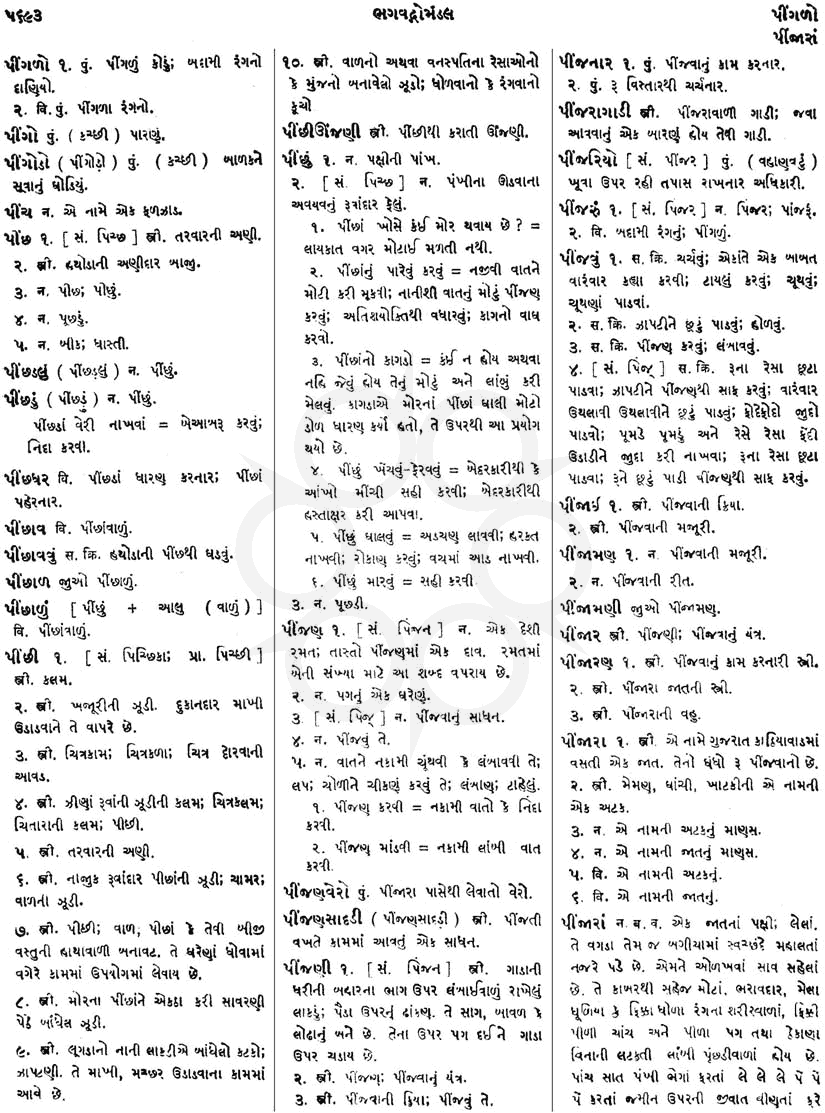 ૫૬૯૩
ભગવદ્ગોમંડલ
પીંગળો
પીંજારાં
પીંગળો ૧. પું. પીંગળું કોડું; બદામી રંગનો
દાણિયો.
૨. વિ. પું. પીંગળા રંગનો.
પીંગો પું. ( કચ્છી ) પારણું.
પીંગોડો ( પીંગોડ઼ો ) પું. ( કચ્છી ) બાળકને
સૂવાનું ઘોડિયું.
પીંચ ન. એ નામે એક ફળઝાડ.
પીંછ ૧. [ સં. પિચ્છ ] સ્ત્રી. તરવારની અણી.
૨. સ્ત્રી. હથોડાની અણીદાર બાજી.
૩. ન. પીછ; પીછું.
૪. ન. પૂછડું.
૫. ન. બીક; ધાસ્તી.
પીંછડલું ( પીંછડ઼લું ) ન. પીંછું.
પીંછડું ( પીંછડ઼ું ) ન. પીંછું.
પીંછડાં વેરી નાખવાં = બેઆબરૂ કરવું;
નિંદા કરવી.
પીંછધર વિ. પીંછડાં ધારણ કરનાર; પીંછાં
પહેરનાર.
પીંછાવ વિ. પીંછાંવાળું.
પીંછાવવું સ. ક્રિ. હથોડાની પીંછથી ઘડવું.
પીંછાળ જુઓ પીંછાળું.
પીંછાળું [ પીંછું + આલુ ( વાળું ) ]
વિ. પીંછાંવાળું.
પીંછી ૧. [ સં. પિચ્છિકા; પ્રા. પિચ્છી ]
સ્ત્રી. કલમ.
૨. સ્ત્રી. ખજૂરીની ઝૂડી. દુકાનદાર માખી
ઉડાડવાને તે વાપરે છે.
૩. સ્ત્રી. ચિત્રકામ; ચિત્રકળા; ચિત્ર દોરવાની
આવડ.
૪. સ્ત્રી. ઝીણાં રૂવાંની ઝૂડીની કલમ; ચિત્રકલમ;
ચિતારાની કલમ; પીછી.
૫. સ્ત્રી. તરવારની અણી.
૬. સ્ત્રી. નાજુક રૂવાંદાર પીછાંની ઝૂડી; ચામર;
વાળના ઝૂડી.
૭. સ્ત્રી. પીછી; વાળ, પીછાં કે તેવી બીજી
વસ્તુની હાથાવાળી બનાવટ. તે ઘરેણાં ધોવામાં
વગેરે કામમાં ઉપયોગમાં લેવાય છે.
૮. સ્ત્રી. મોરના પીંછાંને એકઠા કરી સાવરણી
પેઠે બાંધેલ ઝૂડી.
૯. સ્ત્રી. લૂગડાનો નાની લાકડીએ બાંધેલો કટકો;
ઝાપટણી. તે માખી, મચ્છર ઉડાડવાના કામમાં
આવે છે.
૧૦. સ્ત્રી. વાળનો અથવા વનસ્પતિના રેસાઓનો
કે મુંજનો બનાવેલો ઝૂડો; ધોળવાનો કે રંગવાનો
કૂચો
પીંછીઊંજણી સ્ત્રી. પીંછીથી કરાતી ઊંજણી.
પીંછું ૧. ન. પક્ષીની પાંખ.
૨. [ સં. પિચ્છ ] ન. પંખીના ઊડવાના
અવયવનું રૂવાંદાર ફેલું.
૧. પીંછાં ખોસે કંઈ મોર થવાય છે ? =
લાયકાત વગર મોટાઈ મળતી નથી.
૨. પીંછાંનું પારેવું કરવું = નજીવી વાતને
મોટી કરી મૂકવી; નાનીશી વાતનું મોટું પીંજણ
કરવું; અતિશયોક્તિથી વધારવું; કાગનો વાઘ
કરવો.
૩. પીંછાંનો કાગડો = કંઈ ન હોય અથવા
નહિ જેવું હોય તેનું મોટું અને લાંબું કરી
મેલવું. કાગડાએ મોરનાં પીંછાં ઘાલી મોટો
ડોળ ધારણ કર્યો હતો, તે ઉપરથી આ પ્રયોગ
થયો છે.
૪. પીંછું ખેંચવું-ફેરવવું = બેદરકારીથી કે
આંખો મીંચી સહી કરવી; બેદરકારીથી
હસ્તાક્ષર કરી આપવા.
૫. પીંછું ઘાલવું = અડચણ લાવવી; હરકત
નાખવી; રોકાણ કરવું; વચમાં આડ નાખવી.
૬. પીંછું મારવું = સહી કરવી
૩. ન. પૂછડી.
પીંજણ ૧. [ સં. પિંજન ] ન. એક દેશી
રમત; તાસ્તો પીંજણમાં એક દાવ. રમતમાં
બેની સંખ્યા માટે આ શબ્દ વપરાય છે.
૨. ન. પગનું એક ઘરેણું.
૩. [ સં. પિંજ્ ] ન. પીંજવાનું સાધન.
૪. ન. પીંજવું તે.
૫. ન. વાતને નકામી ચૂંથવી કે લંબાવવી તે;
લપ; ચોળીને ચીકણું કરવું તે; લંબાણ; ટાહેલું.
૧. પીંજણ કરવી = નકામી વાતો કે નિંદા
કરવી.
૨. પીંજણ માંડવી = નકામી લાંબી વાત
કરવી.
પીંજણવેરો પું. પીંજારા પાસેથી લેવાતો વેરો.
પીંજણસાદડી ( પીંજણસાદડ઼ી ) સ્ત્રી. પીંજતી
વખતે કામમાં આવતું એક સાધન.
પીંજણી ૧. [ સં. પિંજન ] સ્ત્રી. ગાડાની
ધરીની બહારના ભાગ ઉપર લંબાઈવાળું રાખેલું
લાકડું; પૈડા ઉપરનું ઢાંકણ. તે સાગ, બાવળ કે
લોઢાનું બને છે. તેના ઉપર પગ દઈને ગાડા
ઉપર ચડાય છે.
૨. સ્ત્રી. પીંજણ; પીંજવાનું યંત્ર.
૩. સ્ત્રી. પીંજવાની ક્રિયા; પીંજવું તે.
પીંજનાર ૧. પું. પીંજવાનું કામ કરનાર.
૨. પું. રૂ વિસ્તારથી ચર્ચનાર.
પીંજરાગાડી સ્ત્રી. પીંજરાવાળી ગાડી; જવા
આવવાનું એક બારણું હોય તેવી ગાડી.
પીંજરિયો [ સં. પિંજર ] પું. ( વહાણવટું )
ખૂવા ઉપર રહી તપાસ રાખનાર અધિકારી.
પીંજરું ૧. [ સં. પિંજર ] ન. પિંજર; પાંજરૂં.
૨. વિ. બદામી રંગનું; પીંગળું.
પીંજવું ૧. સ. ક્રિ. ચર્ચવું; એકાંતે એક બાબત
વારંવાર કહ્યા કરવી; ટાયલું કરવું; ચૂથવું;
ચૂથણાં પાડવાં.
૨. સ. ક્રિ. ઝાપટીને છૂટું પાડવું; હોળવું.
૩. સ. ક્રિ. પીંજણ કરવું; લંબાવવું.
૪. [ સં. પિંજ્ ] સ. ક્રિ. રૂના રેસા છૂટા
પાડવા; ઝાપટીને પીંજણથી સાફ કરવું; વારંવાર
ઉથલાવી ઉથલાવીને છૂટું પાડવું; ફોદેફોદો જુદો
પાડવો; પૂમડે પૂમડું અને રેસે રેસા ફેંદી
ઉડાડીને જુદા કરી નાખવા; રૂના રેસા છૂટા
પાડવા; રૂને છૂટું પાડી પીંજણથી સાફ કરવું.
પીંજાઈ ૧. સ્ત્રી. પીંજવાની ક્રિયા.
૨. સ્ત્રી. પીંજવાની મજૂરી.
પીંજામણ ૧. ન. પીંજવાની મજૂરી.
૨. ન. પીંજવાની રીત.
પીંજામણી જુઓ પીંજામણ.
પીંજાર સ્ત્રી. પીંજણી; પીંજવાનું યંત્ર.
પીંજારણ ૧. સ્ત્રી. પીંજવાનું કામ કરનારી સ્ત્રી.
૨. સ્ત્રી. પીંજારા જાતની સ્ત્રી.
૩. સ્ત્રી. પીંજારાની વહુ.
પીંજારા ૧. સ્ત્રી. એ નામે ગુજરાત કાઠિયાવાડમાં
વસતી એક જાત. તેનો ધંધો રૂ પીંજવાનો છે.
૨. સ્ત્રી. મેમણ, ઘાંચી, ખાટકીની એ નામની
એક અટક.
૩. ન. એ નામની અટકનું માણસ.
૪. ન. એ નામની જાતનું માણસ.
૫. વિ. એ નામની અટકનું.
૬. વિ. એ નામની જાતનું.
પીંજારાં ન. બ. વ. એક જાતનાં પક્ષી; લેલાં.
તે વગડા તેમ જ બગીચામાં સ્વચ્છંદે મહાલતાં
નજરે પડે છે. એમને ઓળખવાં સાવ સહેલાં
છે. તે કાબરથી સહેજ મોટાં, ભરાવદાર, મેલા
ધૂળિયા કે ફિક્કા ધોળા રંગના શરીરવાળાં, ફિક્કી
પીળી ચાંચ અને પીળા પગ તથા ઠેકાણા
વિનાની લટકતી લાંબી પૂંછડીવાળાં હોય છે.
પાંચ સાત પંખી ભેગાં ફરતાં લે લે લે પેં પેં
પેં કરતાં જમીન ઉપરની જીવાત વીણતાં ફરે